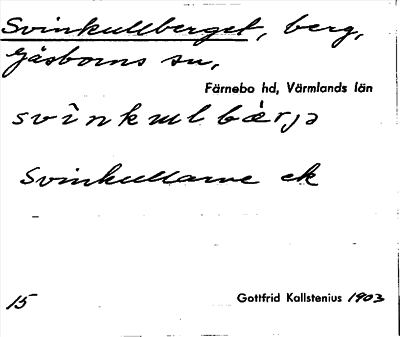 Svinkullberget, berg,
Gåsborns sn,
Färnebo hd, Värmlands län
svìnkulbæ̀rjə
Svinkullarne ek
15
Gottfrid Kallstenius 1903